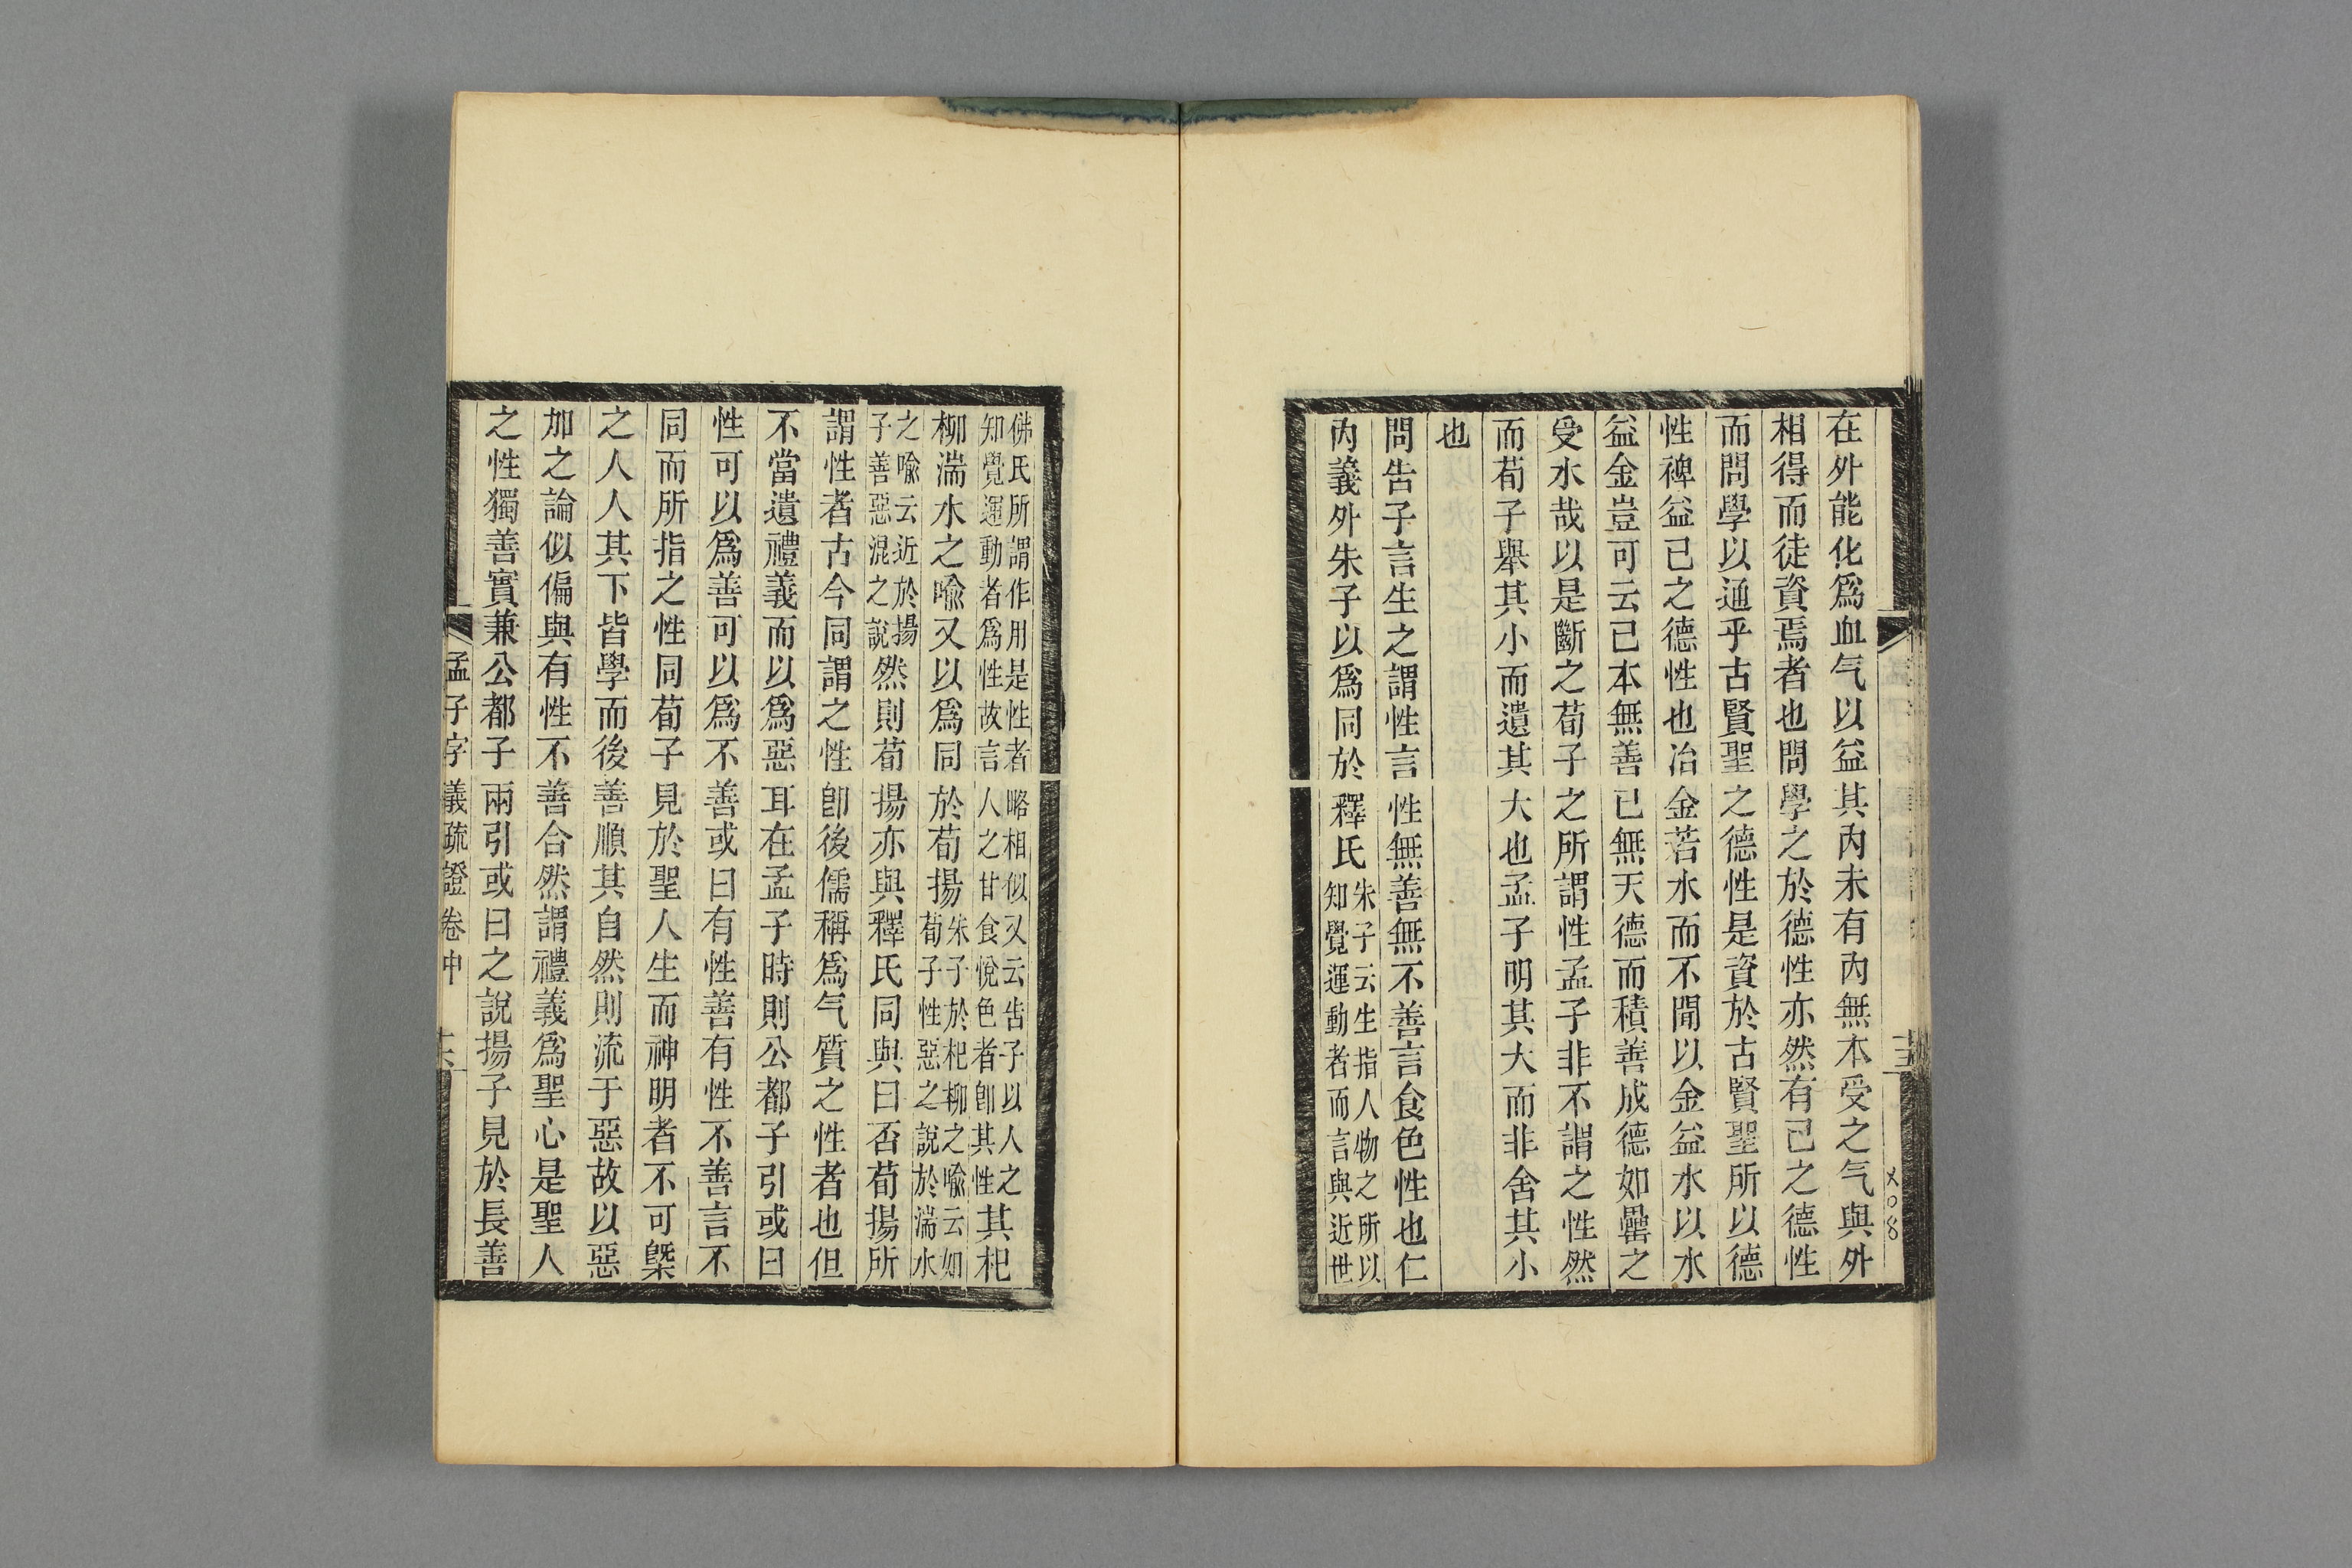 在外能化爲血气以益其內未有內無本受之气與外
相得而徒資焉者也問學之於德性亦然有己之德性
而問學以通乎古賢聖之德性是資於古賢聖所以德
性裨益己之德性也冶金若水而不聞以金益水以水
益金豈可云己本無善己無天德而積善成德如罍之
受水哉以是斷之荀子之所謂性孟子非不謂之性然
而荀子舉其小而遺其大也孟子明其大而非舍其小
也
問告子言生之謂性言性無善無不善言食色性也仁
內義外朱子以爲同於釋氏朱子云生指人物之所以知覺運動者而言與近世
佛氏所謂作用是性者略相似又云告子以人之知覺運動者爲性故言人之甘食悅色者卽其性其杞
柳湍水之喻又以爲同於荀揚朱子於杞柳之喻云如荀子性惡之說於湍水
之喻云近於揚子善惡混之說然則荀揚亦與釋氏同與曰否荀揚所
謂性者古今同謂之性卽後儒稱爲气質之性者也但
不當遺禮義而以爲惡耳在孟子時則公都子引或曰
性可以爲善可以爲不善或曰有性善有性不善言不
同而所指之性同荀子見於聖人生而神明者不可槩
之人人其下皆學而後善順其自然則流于惡故以惡
加之論似偏與有性不善合然謂禮義爲聖心是聖人
之性獨善實兼公都子兩引或曰之說揚子見於長善
孟子字義疏證卷中
十六
十五